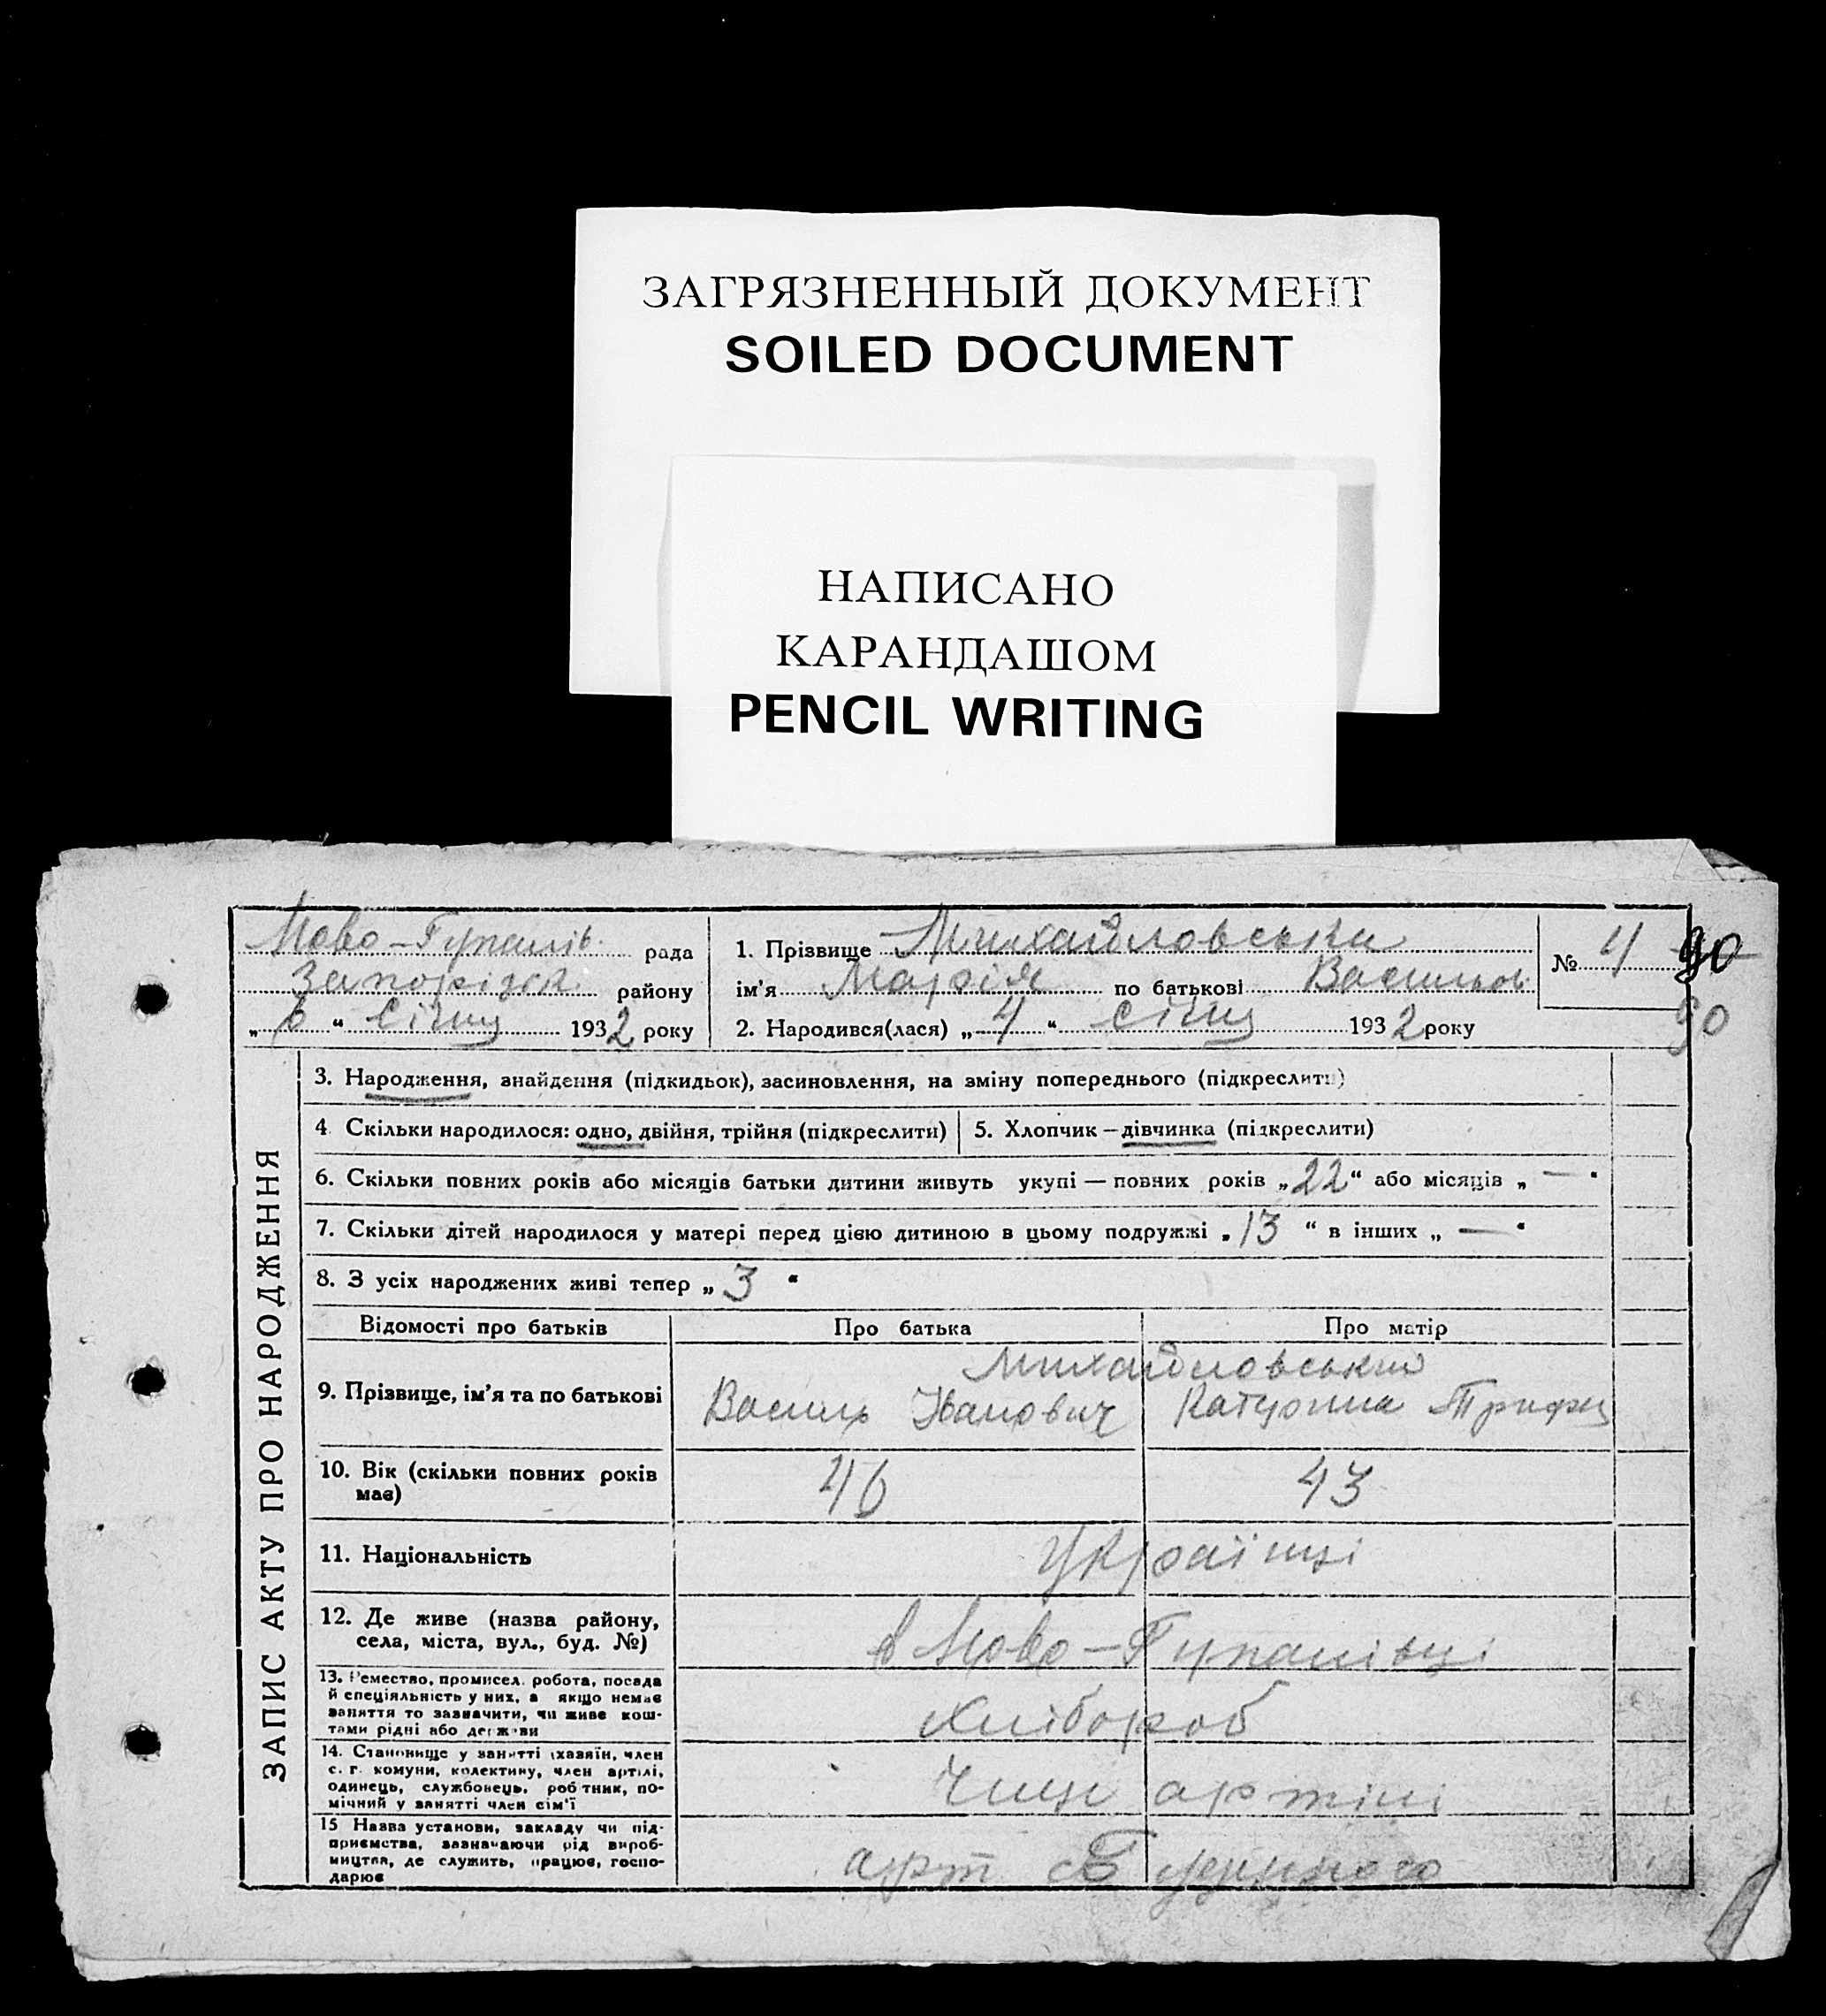 ЗАГРЯЗНЕННЫЙ ДОКУМЕНТ
SOILED DOCUMENT
НАПИСАНО
КАРАНДАШОМ
PENCIL WRITING
Ново-Гупалів. рада
Запорізьк. району
„ 6 “ Січня 1932 року
1. Прізвище Михайловська
ім’я Марія по батькові Васильов
2. Народився(лася) „ 4 “ Січня 1932 року
№ 4
90
90
ЗАПИС АКТУ ПРО НАРОДЖЕННЯ
3. Народження, знайдення (підкидьок), засиновлення, на зміну попереднього (підкреслити)
4. Скільки народилося: одно, двійня, трійня (підкреслити)
5. Хлопчик – дівчинка (підкреслити)
6. Скільки повних років або місяців батьки дитини живуть укупі — повних років „ 22 “ або місяців „ — “
7. Скільки дітей народилося у матері перед цією дитиною в цьому подружжі „ 13 “ в інших „ — “
8. З усіх народжених живі тепер „ 3 “
Відомості про батьків Про батька Про матір
9. Прізвище, ім’я та по батькові
Михайловський
Василь Іванович Катерина Триф
10. Вік (скільки повних років
має)
46 43
11. Національність
Українці
12. Де живе (назва району,
села, міста, вул., буд. №)
в Ново-Гупалівці
13. Ремество, промисел, робота, посада
й спеціяльність у них, а якщо немає
заняття то зазначити, чи живе кош-
тами рідні або держави
Хлібороб
14. Становище у занятті (хазяїн, член
с. г. комуни, колективу, член артілі,
одинець, службовець, робітник, по-
мічний у занятті член сім’ї
Член артілі
15 Назва установи, закладу чи під-
приємства, зазначаючи рід вироб-
ництва, де служить, працює, госпо-
дарює
арт Буденного